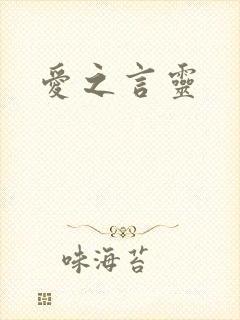 愛之言靈
味海苔